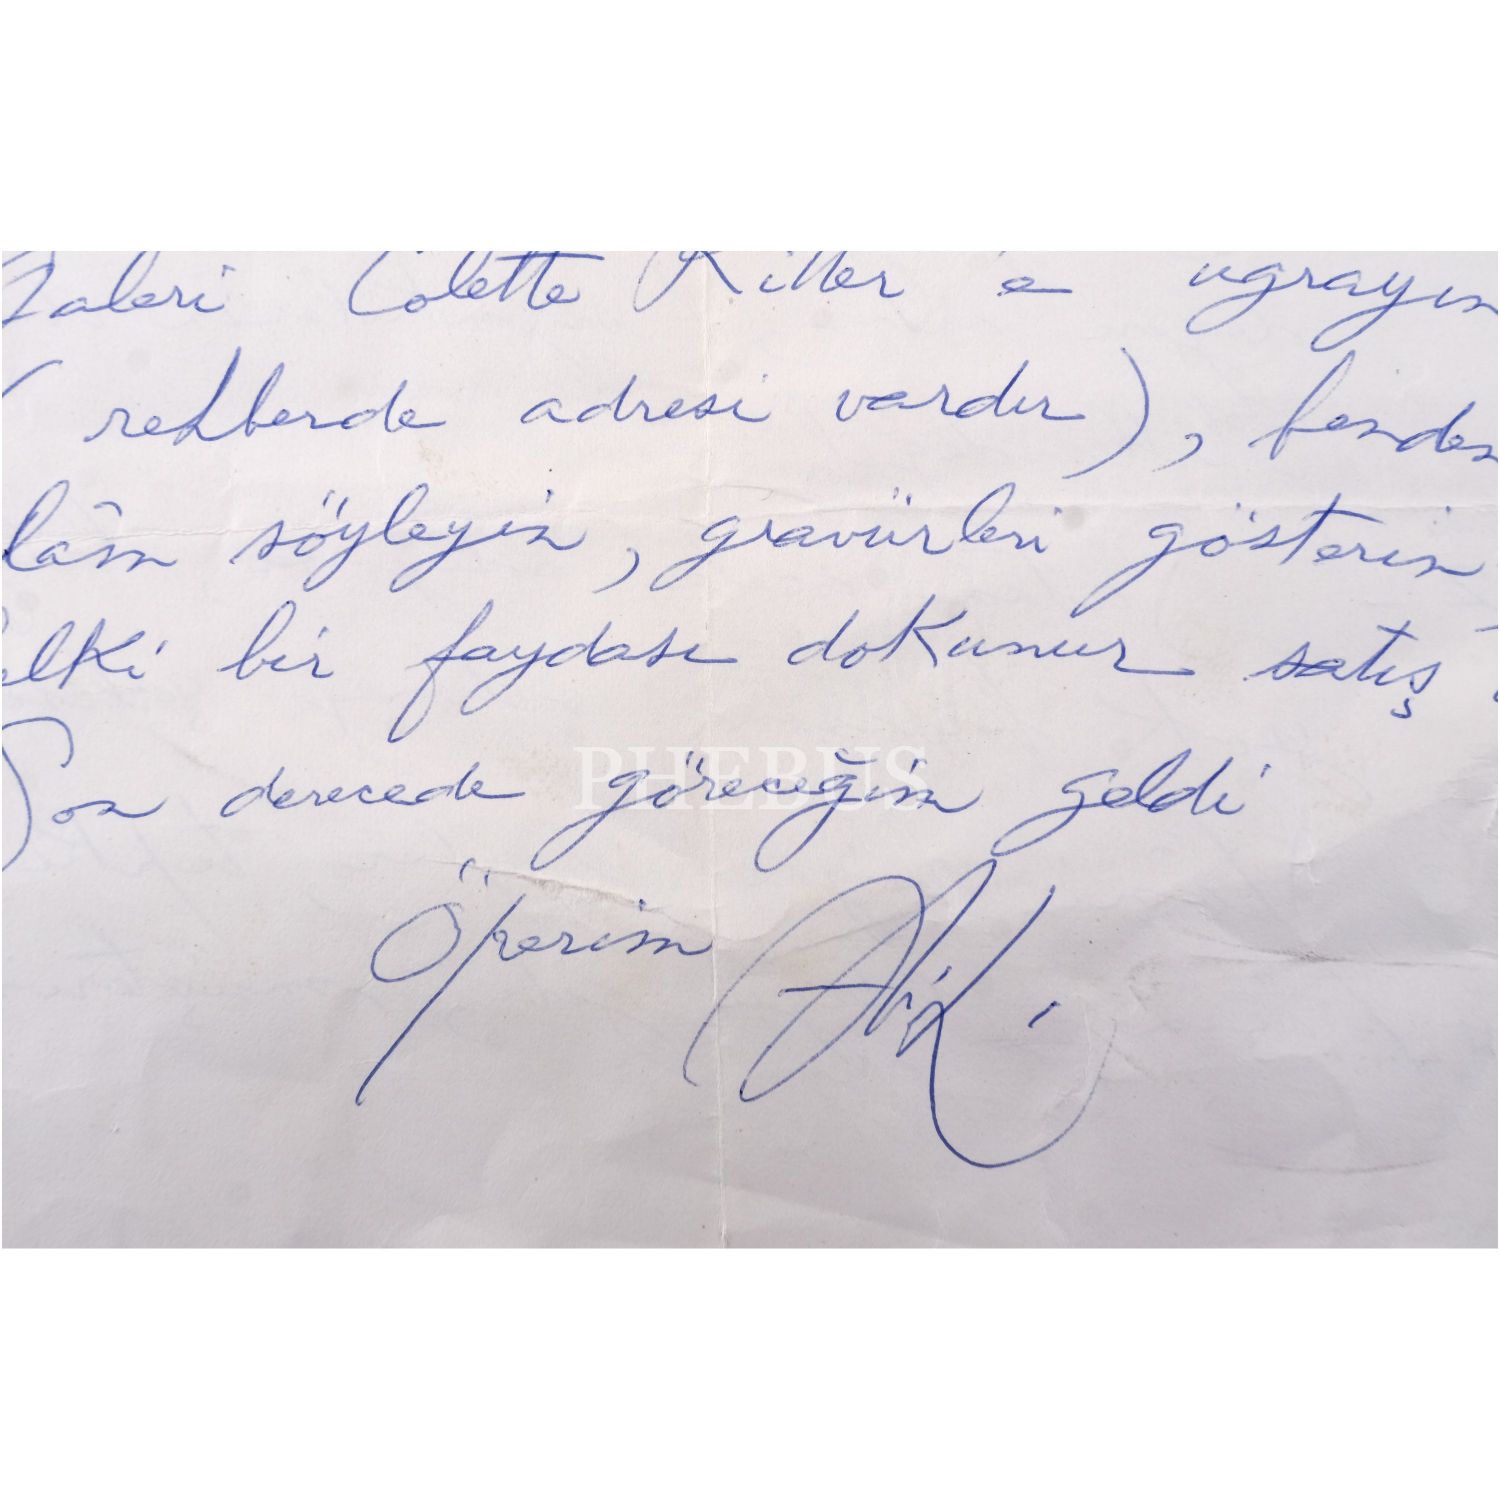 Galeri Colette Ritter'e uğrayın
( rehberde adresi vardır ), benden
lâm söyleyin, gravürleri gösterin
elki bir faydası dokunur satış
Son derecede göreceğim geldi
Öperim
PHEBUS